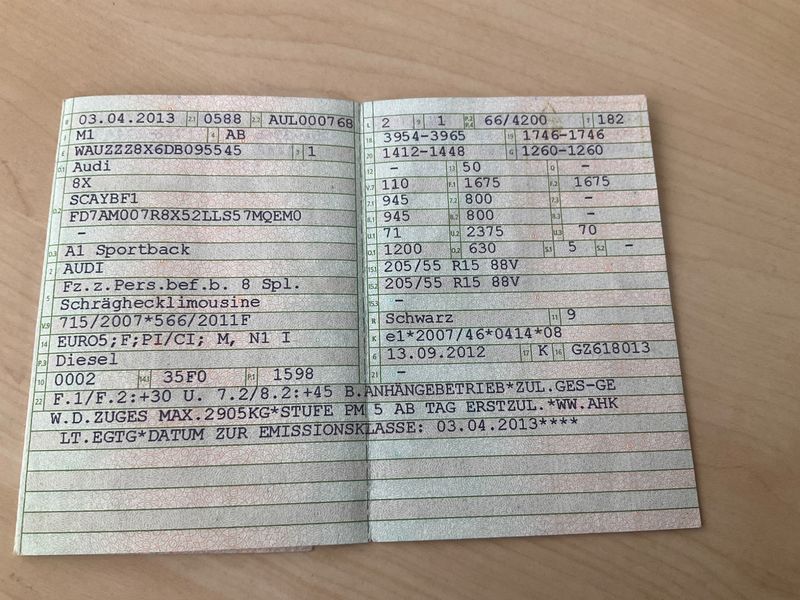 B 03.04.2013 2.1 0588 2.2 AUL000768
J M1 4 AB
E WAUZZZ8X6DB095545 3 1
D.1 Audi
8X
SCAYBF1
D.2 FD7AM007R8X52LLS57MQEM0
-
D.3 A1 Sportback
2 AUDI
5 Fz.z.Pers.bef.b. 8 Spl.
Schräghecklimousine
V.9 715/2007*566/2011F
14 EURO5;F;PI/CI; M, N1 I
P.3 Diesel
10 0002 14.1 35F0 P.1 1598
L 2 9 1 P.2 P.4 66/4200 T 182
18 3954-3965 19 1746-1746
20 1412-1448 G 1260-1260
12 - 13 50 Q -
V.7 110 F.1 1675 F.2 1675
7.1 945 7.2 800 7.3 -
8.1 945 8.2 800 8.3 -
U.1 71 U.2 2375 U.3 70
O.1 1200 O.2 630 S.1 5 S.2 -
15.1 205/55 R15 88V
15.2 205/55 R15 88V
15.3 -
R Schwarz 11 9
K e1*2007/46*0414*08
6 13.09.2012 17 K 16 GZ618013
21 -
22 F.1/F.2:+30 U. 7.2/8.2:+45 B.ANHÄNGEBETRIEB*ZUL.GES-GE
W.D.ZUGES MAX.2905KG*STUFE PM 5 AB TAG ERSTZUL.*WW.AHK
LT.EGTG*DATUM ZUR EMISSIONSKLASSE: 03.04.2013****